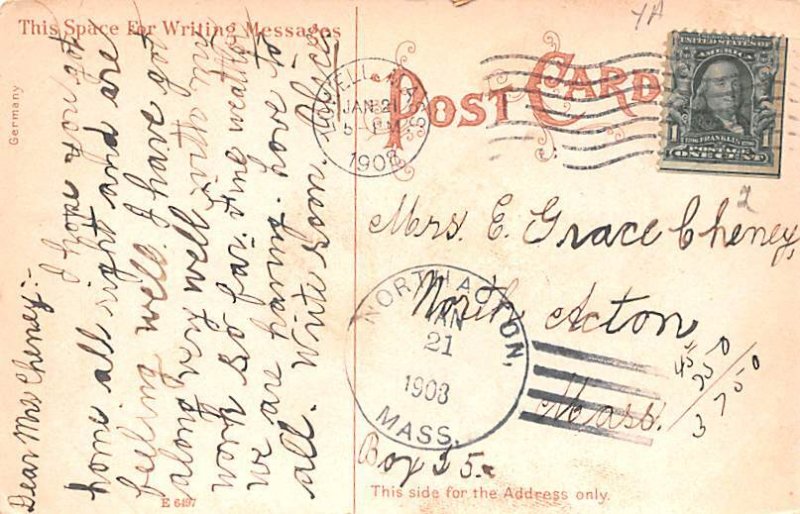 This Space For Writing Messages
Germany
Dear Mrs Cheney:-
I hope you got
home all right and are
feeling well. I have got
along very well
work so far. Fine weather
we are having. Love
all. Write soon.
E 6497
POST CARD
LOWELL, MASS
JAN 21
5-PM
1908
UNITED STATES OF
AMERICA
1
FRANKLIN
POSTAGE
ONE CENT
Mrs. E. Grace Cheney,
North Acton
Mass.
Box 25.
NORTH ACTON,
JAN
21
1908
MASS.
2
45
750
3750
This side for the Address only.